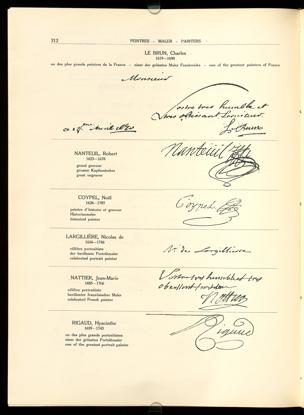 312 PEINTRES - MALER - PAINTERS
LE BRUN, Charles
1619—1690
un des plus grands peintres de la France - einer der grössten Maler Frankreichs - one of the greatest painters of France
Monsieur
Votre tres humble et
tres obeissant serviteur
Le Brun
NANTEUIL, Robert
1623—1678
grand graveur
grosser Kupferstecher
great engraver
Nanteüil
COYPEL, Noël
1628—1707
peintre d'histoire et graveur
Historienmaler
historical painter
Coypel
LARGILLIÈRE, Nicolas de
1656—1746
célèbre portraitiste
der berühmte Porträtmaler
celebrated portrait painter
N. de Largillierre
NATTIER, Jean-Marie
1685—1766
célèbre portraitiste
berühmter französischer Maler
celebrated French painter
Votre tres humble et tres
obeissant serviteur
Nattier
RIGAUD, Hyacinthe
1659—1743
un des plus grands portraitistes
einer der grössten Porträtmaler
one of the greatest portrait painter
Rigaud